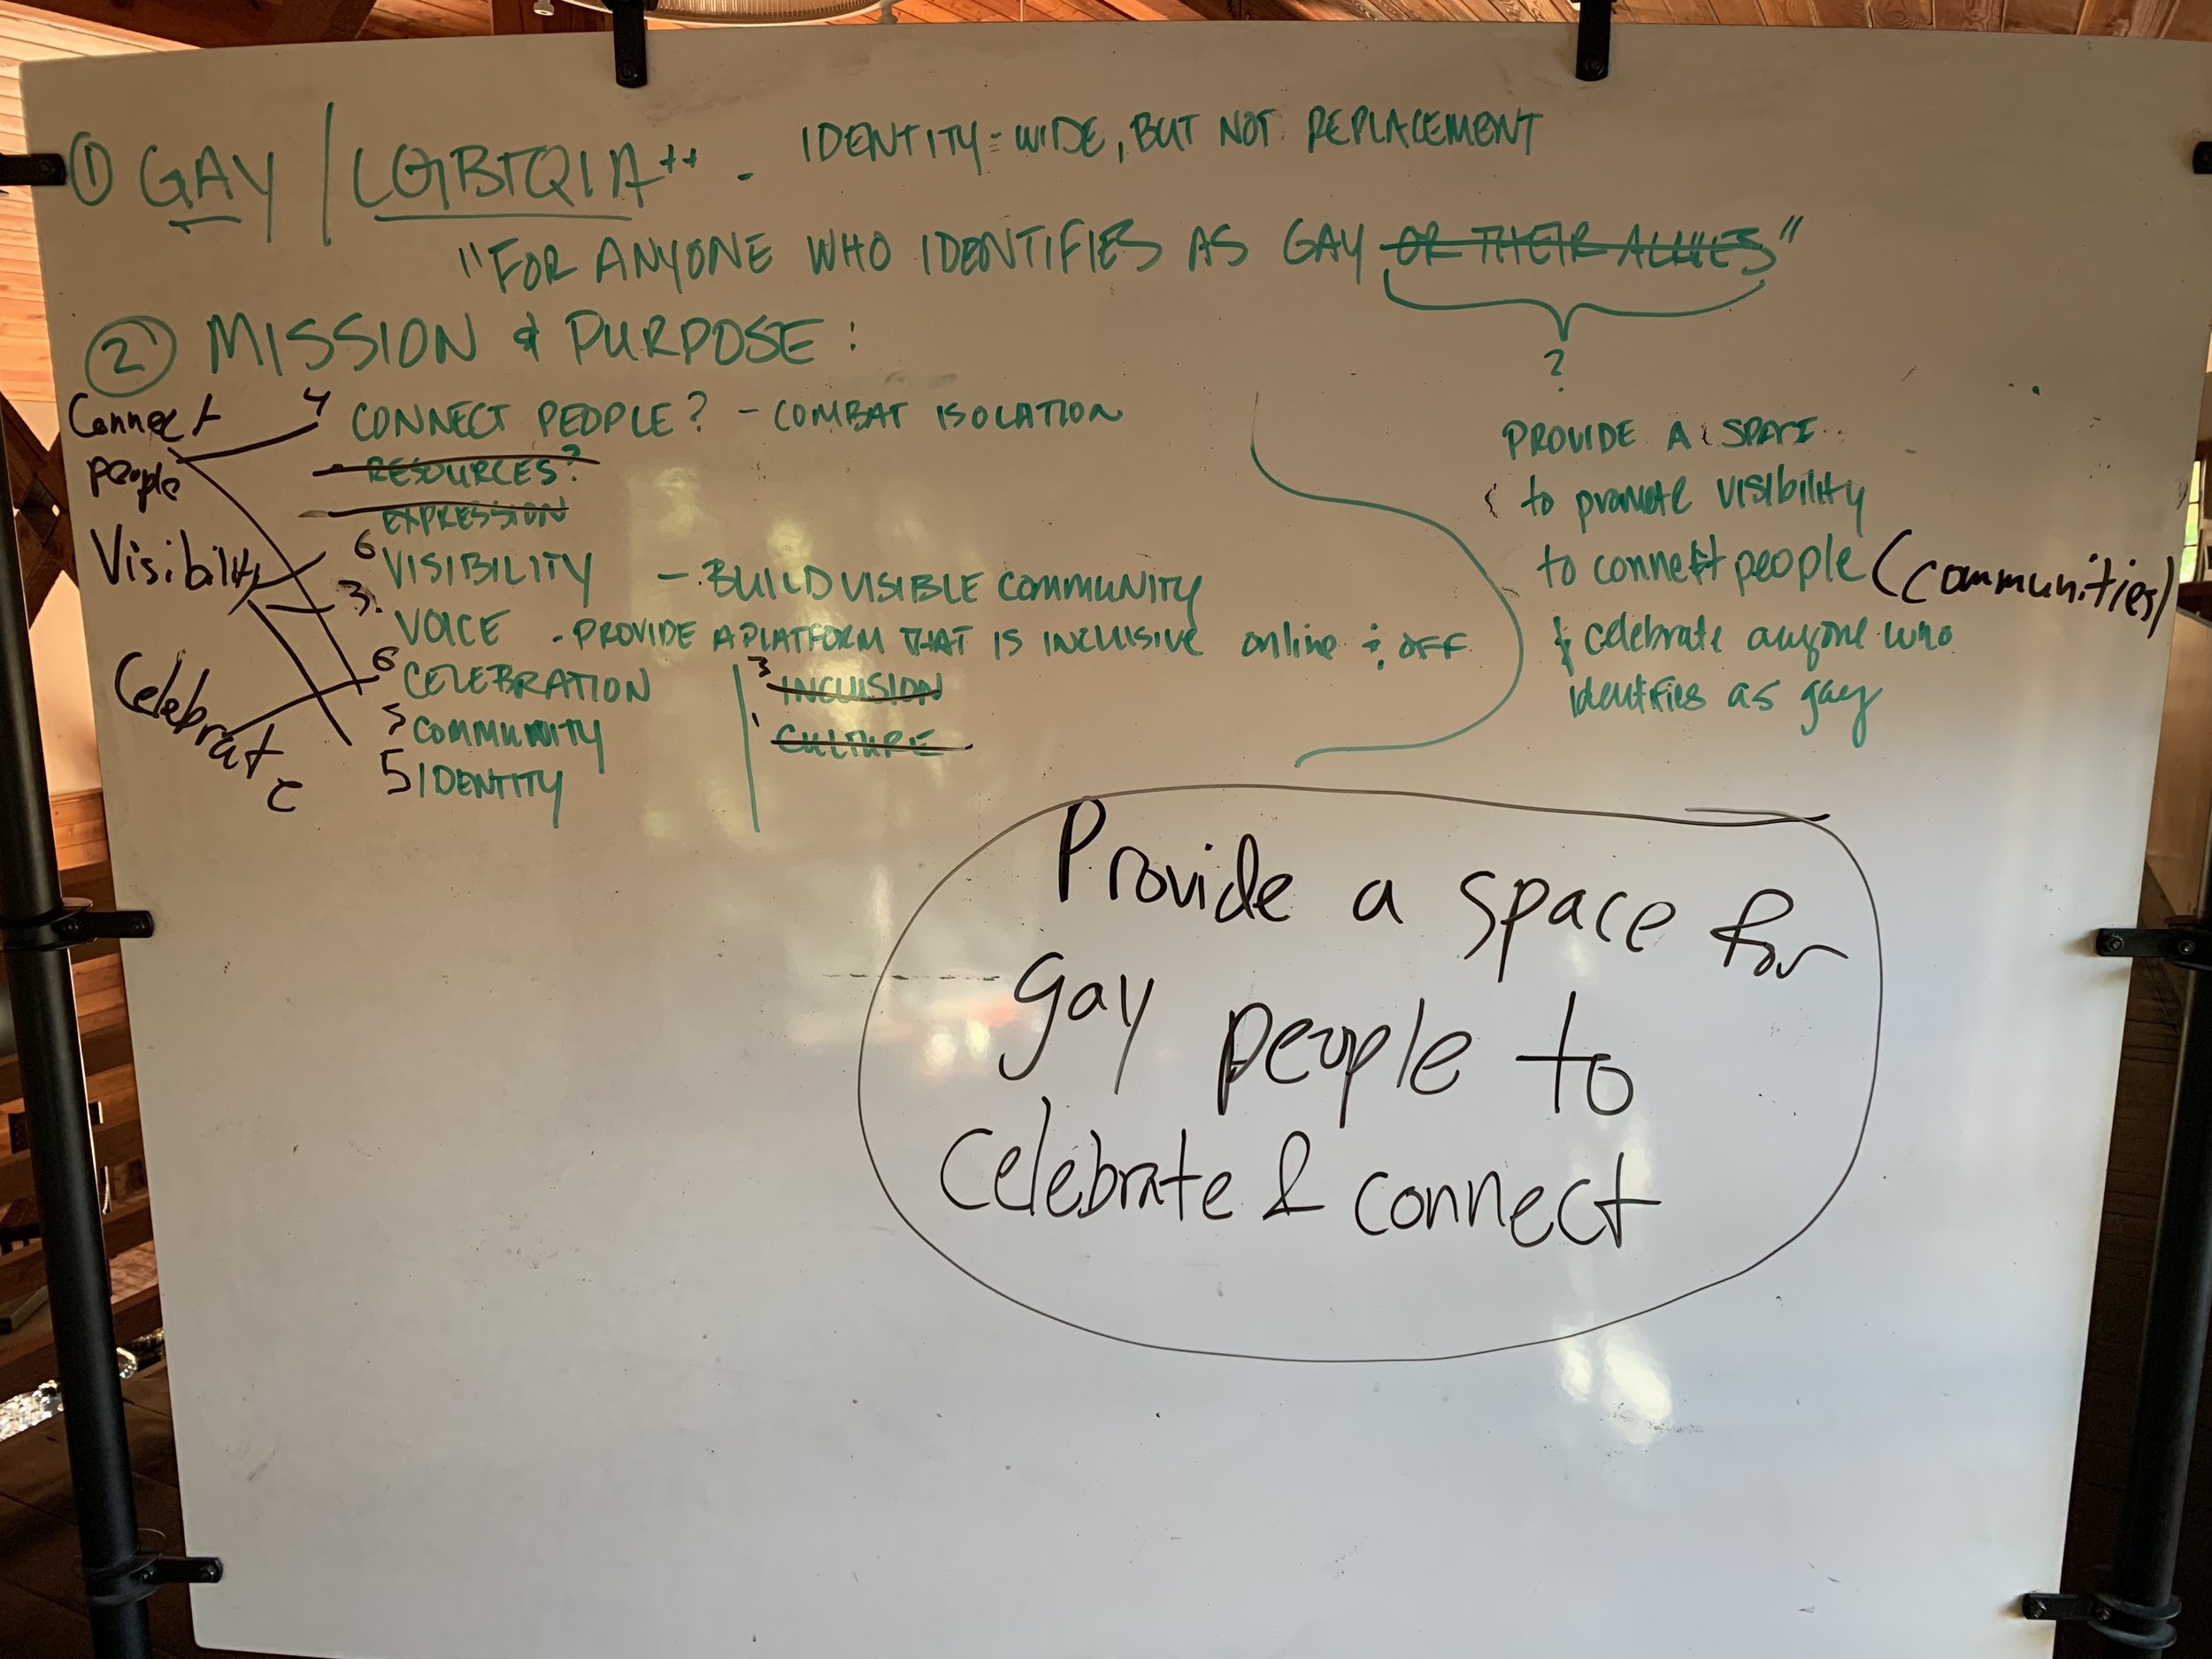 ① GAY / LGBTQIA++ - IDENTITY = WIDE, BUT NOT REPLACEMENT
"FOR ANYONE WHO IDENTIFIES AS GAY OR THEIR ALLIES"
?
② MISSION & PURPOSE:
Connect
people
Visibility
Celebrate
4 CONNECT PEOPLE? - COMBAT ISOLATION
- RESOURCES?
- EXPRESSION
6 VISIBILITY - BUILD VISIBLE COMMUNITY
3. VOICE - PROVIDE A PLATFORM THAT IS INCLUSIVE online & OFF
6 CELEBRATION
5 COMMUNITY
5 IDENTITY
3 INCLUSION
1 CULTURE
PROVIDE A SPACE
to promote VISIbility
to connect people (communities)
& celebrate anyone who
identifies as gay
Provide a space for
gay people to
celebrate & connect